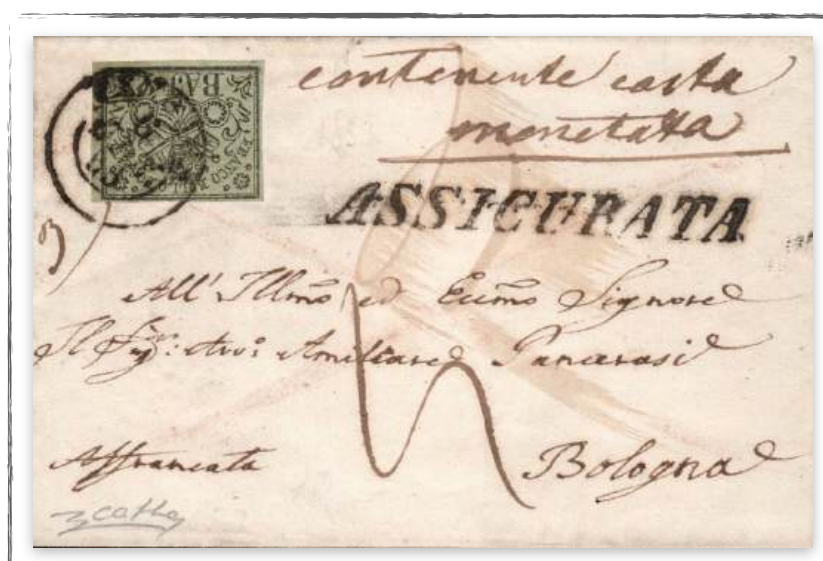 contenente carta
monetata
ASSICURATA
All' Illmo ed Ecmo Signore
Il Sigr: Avvo: Amilcare Pancerasi
Affrancata Bologna
BAJ
FRANCO BOLLO